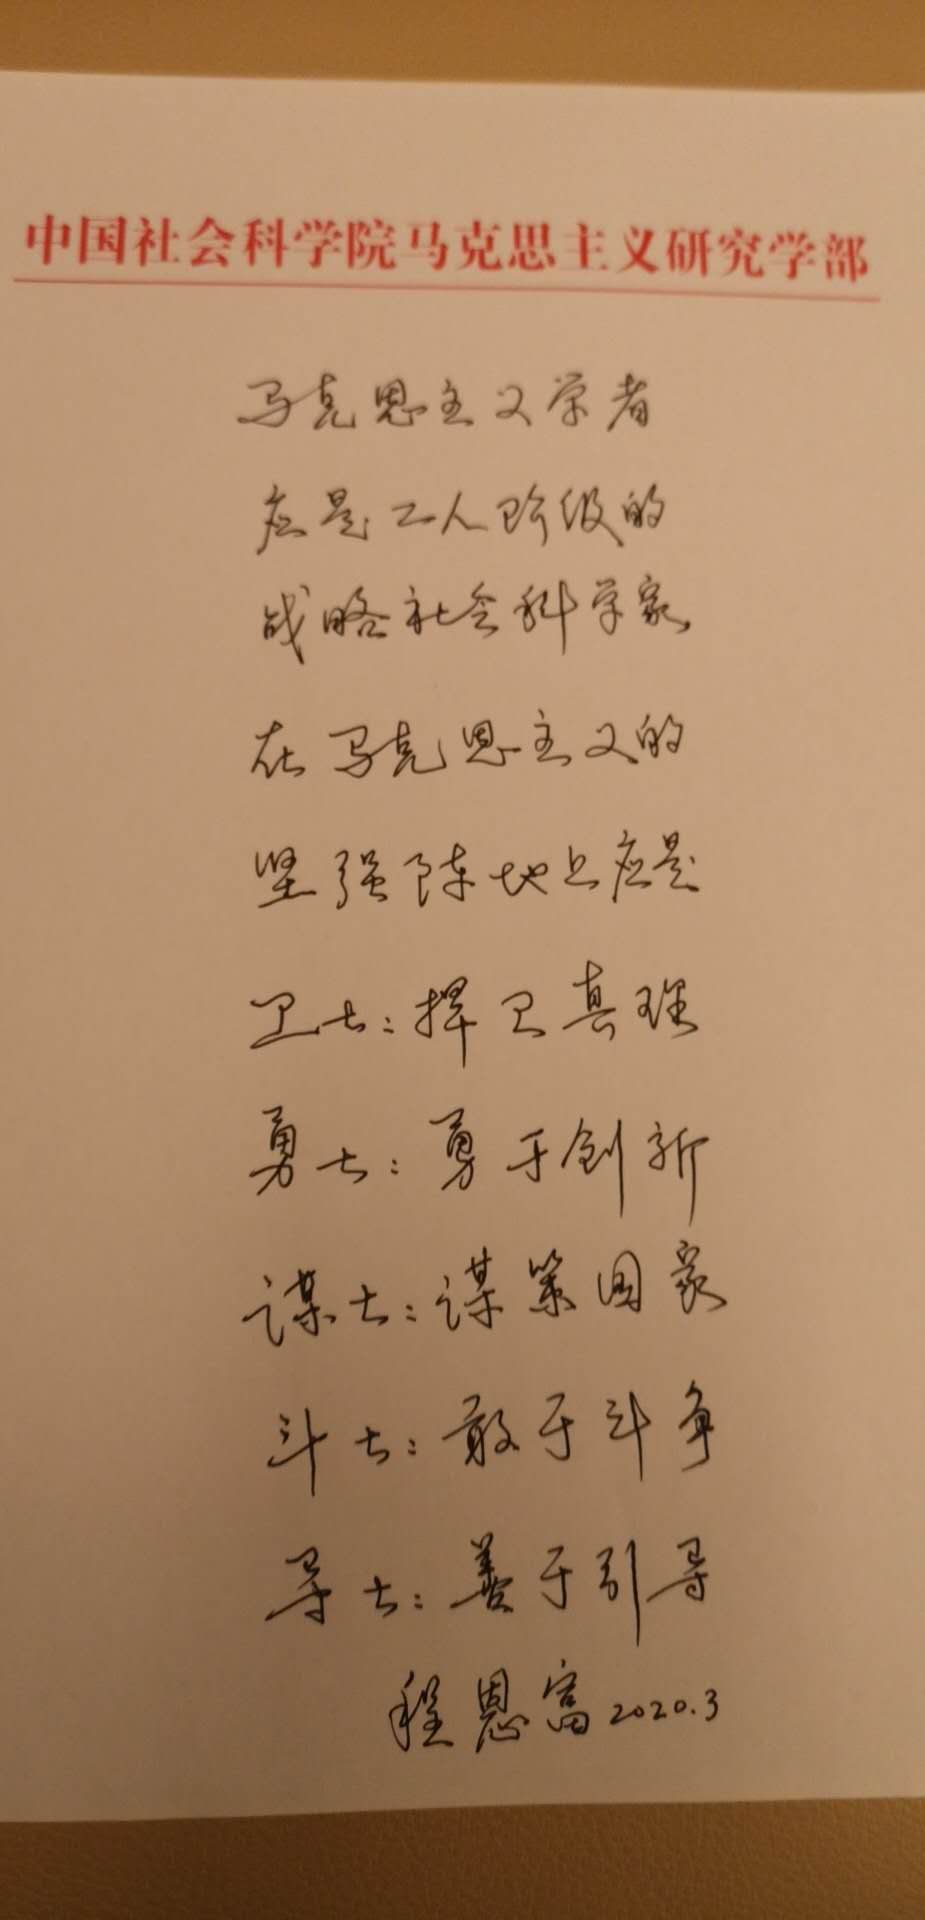 中国社会科学院马克思主义研究学部
马克思主义学者
应是工人阶级的
战略社会科学家
在马克思主义的
坚强阵地上应是
卫士：捍卫真理
勇士：勇于创新
谋士：谋策国家
斗士：敢于斗争
导士：善于引导
程恩富2020.3